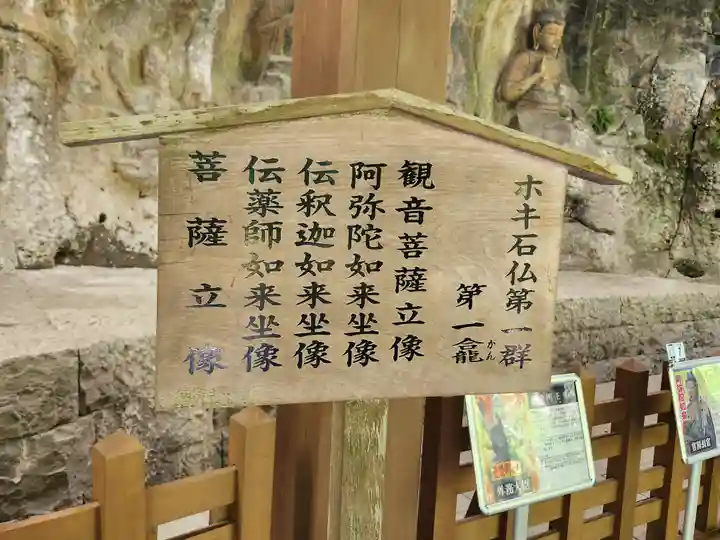 ホキ石仏第一群
第一龕
がん
観音菩薩立像
阿弥陀如来坐像
伝釈迦如来坐像
伝薬師如来坐像
菩薩立像
外務大臣